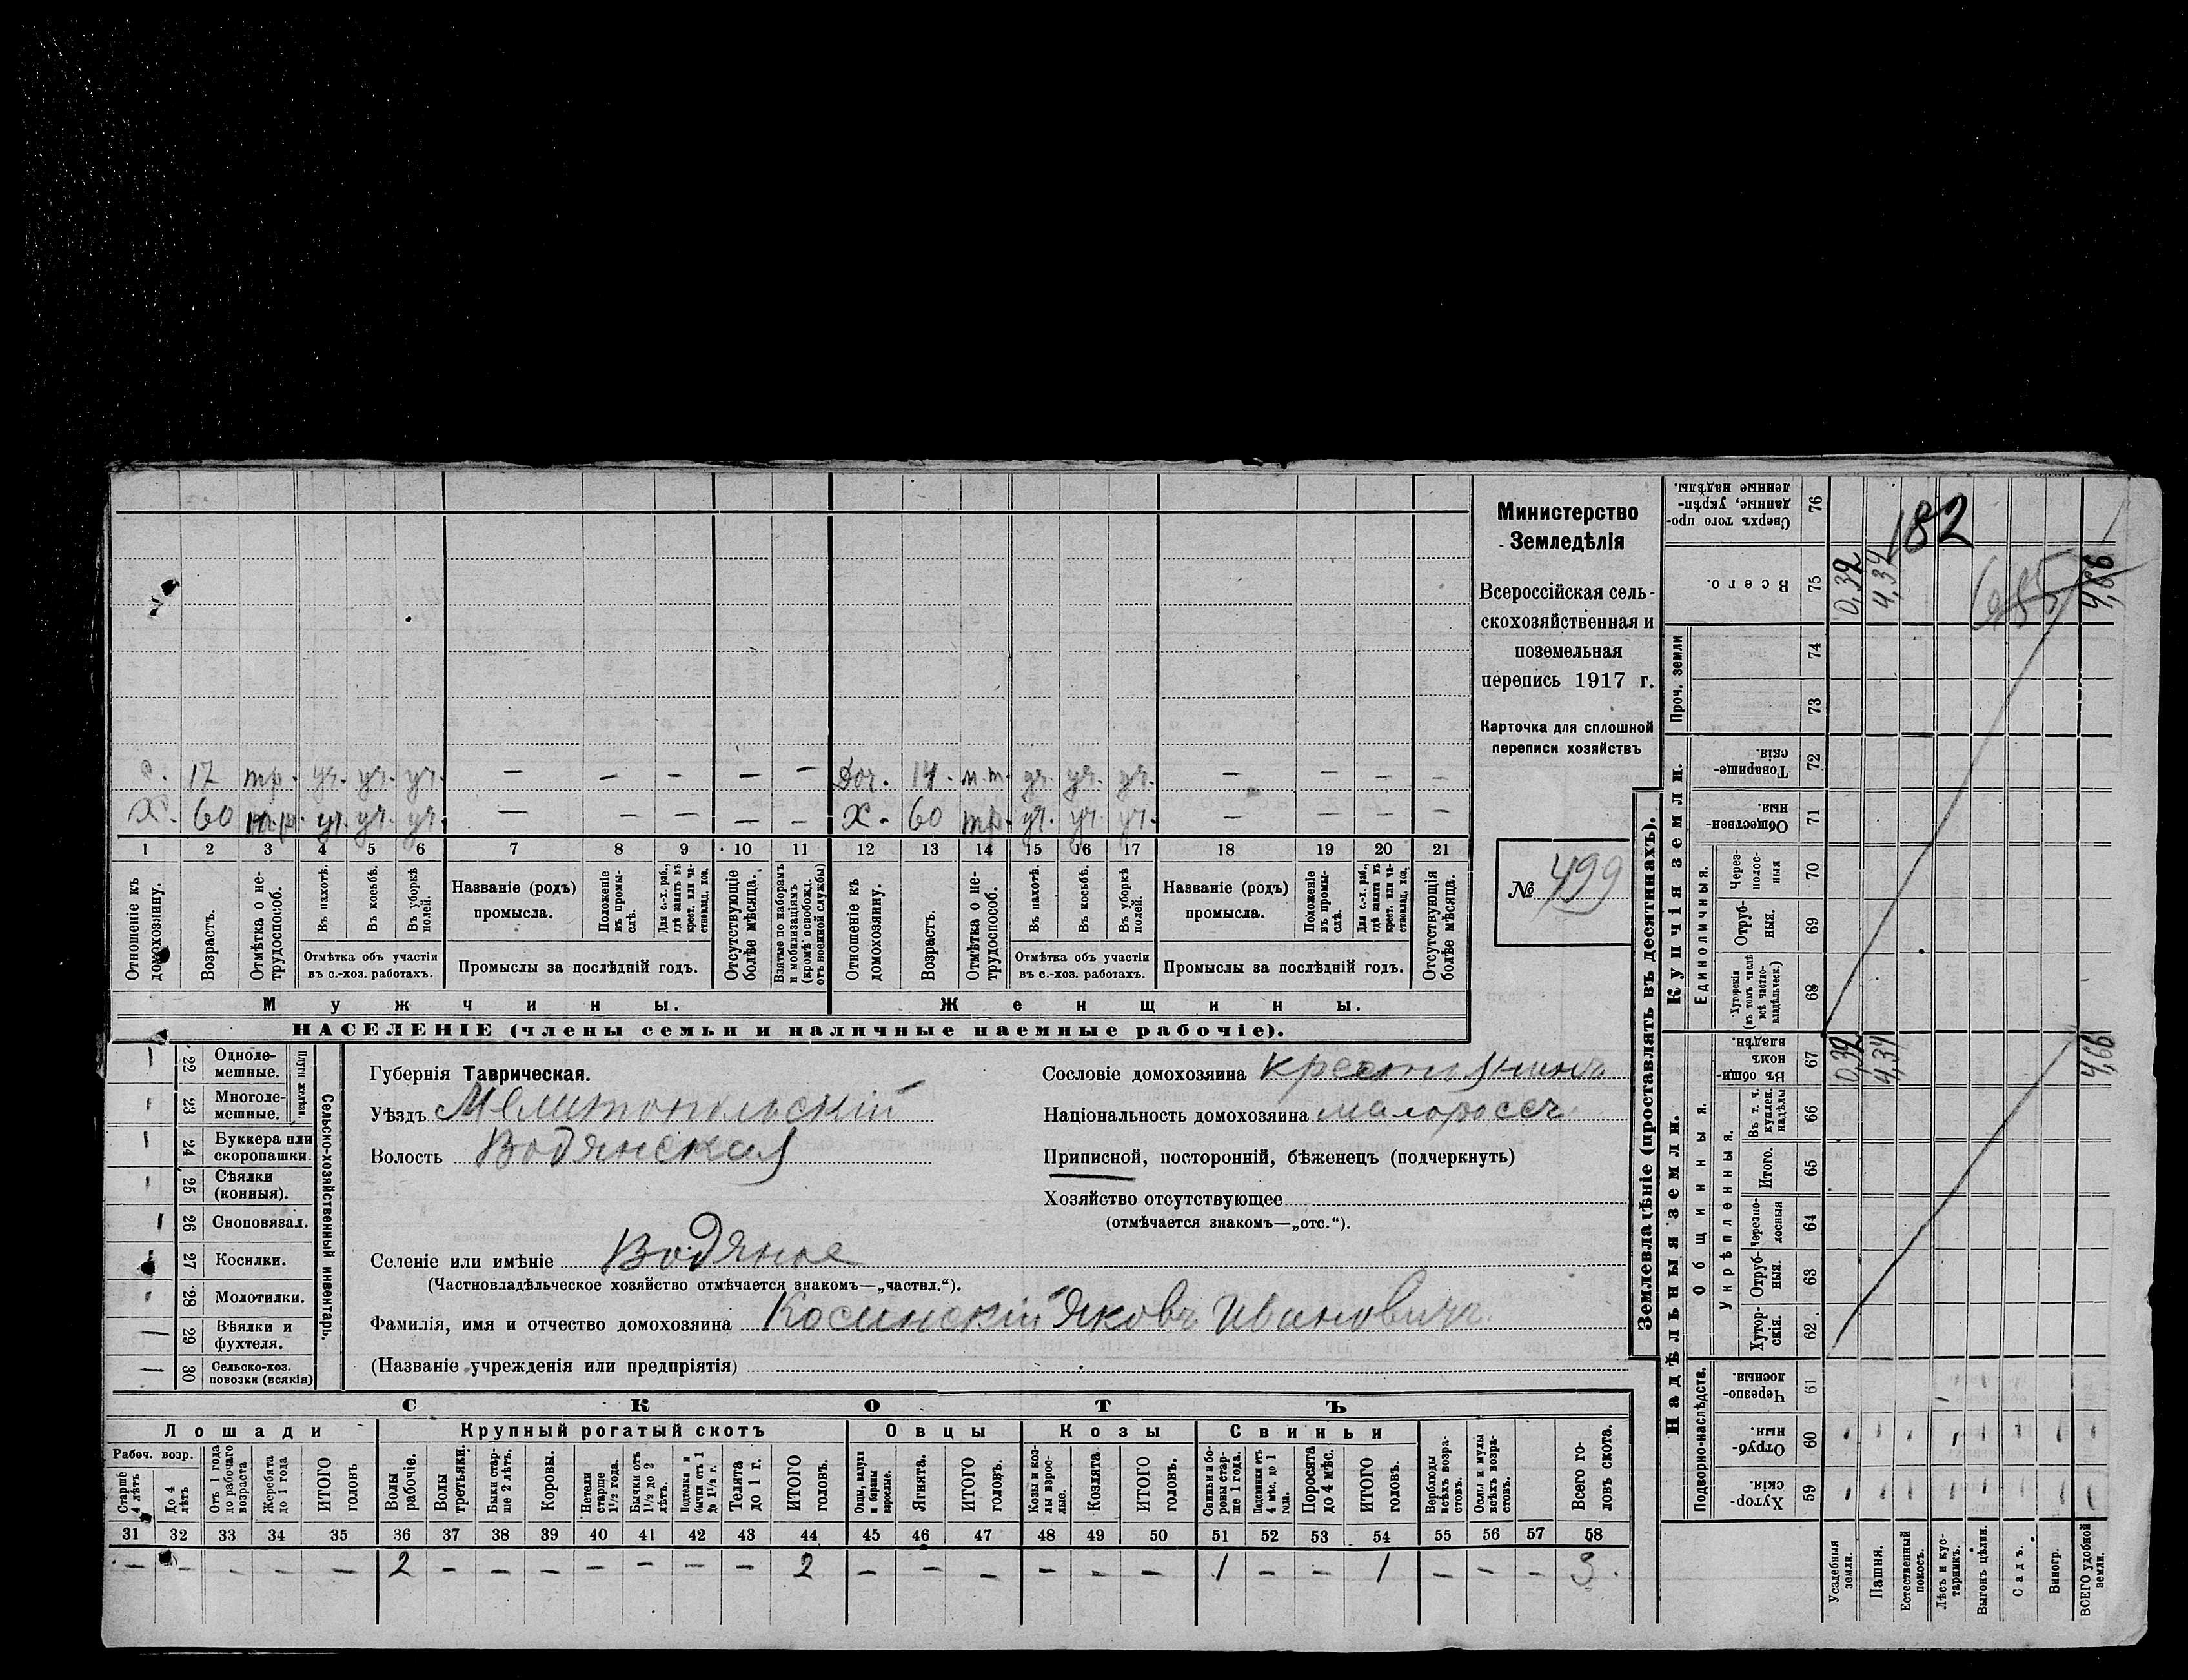 Министерство
Земледѣлія
Всероссійская сель-
скохозяйственная и
поземельная
перепись 1917 г.
Карточка для сплошной
переписи хозяйствъ
№ 499
с. 17 тр. уч. уч. уч. — — — — — Доч. 14. н.т. уч. уч. уч. — — — —
Х. 60 уч. уч. уч. — — — — — Х. 60 тр. уч. уч. уч. — — — —
1 2 3 4 5 6 7 8 9 10 11 12 13 14 15 16 17 18 19 20 21
Отношеніе къ домохозяину.
Возрастъ.
Отмѣтка о не-трудоспособ.
Въ пахотѣ.
Въ косьбѣ.
Въ уборкѣ полей.
Названіе (родъ) промысла.
Положеніе въ промы-слѣ.
Для с.-х. раб., гдѣ занятъ въ крест. или ча-стновлад. хоз.
Отсутствующіе болѣе мѣсяца.
Взятые по наборамъ и мобилизаціямъ (кромѣ освобожд. отъ военной службы)
Отношеніе къ домохозяину.
Возрастъ.
Отмѣтка о не-трудоспособ.
Въ пахотѣ.
Въ косьбѣ.
Въ уборкѣ полей.
Названіе (родъ) промысла.
Положеніе въ промы-слѣ.
Для с.-х. раб., гдѣ занята въ крест. или ча-стновлад. хоз.
Отсутствующія болѣе мѣсяца.
Отмѣтка объ участіи въ с.-хоз. работахъ.
Промыслы за послѣдній годъ.
Отмѣтка объ участіи въ с.-хоз. работахъ.
Промыслы за послѣдній годъ.
Мужчины. Женщины.
НАСЕЛЕНІЕ (члены семьи и наличные наемные рабочіе).
Сельско-хозяйственный инвентарь.
Плуги желѣзн.
— 22 Одноле-мешные.
— 23 Многоле-мешные.
— 24 Буккера или скоропашки.
— 25 Сѣялки (конныя).
— 26 Сноповязал.
27 Косилки.
— 28 Молотилки.
— 29 Вѣялки и фухтеля.
— 30 Сельско-хоз. повозки (всякія)
Губернія Таврическая.
Уѣздъ Мелитопольскій
Волость Водянская
Селеніе или имѣніе Водяное
(Частновладѣльческое хозяйство отмѣчается знакомъ—„частвл.“).
Фамилія, имя и отчество домохозяина Косинскій Яковъ Ивановичъ.
(Названіе учрежденія или предпріятія)
Сословіе домохозяина крестьянинъ
Національность домохозяина малороссъ
Приписной, посторонній, бѣженецъ (подчеркнуть)
Хозяйство отсутствующее
(отмѣчается знакомъ—„отс.“).
СКОТЪ
Лошади Крупный рогатый скотъ Овцы Козы Свиньи
Рабоч. возр.
Старше 4 лѣтъ
До 4 лѣтъ
Отъ 1 года до рабочаго возраста
Жеребята до 1 года
ИТОГО головъ
Волы рабочіе.
Волы третьяки.
Быки стар-ше 2 лѣтъ.
Коровы.
Нетели старше 1½ года.
Бычки отъ 1½ до 2 лѣтъ.
Подтелки и бычки отъ 1 до 1½ г.
Телята до 1 г.
ИТОГО головъ.
Овцы, валухи и бараны взрослые.
Ягнята.
ИТОГО головъ.
Козы и коз-лы взрос-лые.
Козлята
ИТОГО головъ.
Свиньи и бо-ровы стар-ше 1 года.
Подсвинки отъ 4 мѣс. до 1 года.
Поросята до 4 мѣс.
ИТОГО головъ.
Верблюды всѣхъ возра-стовъ.
Ослы и мулы всѣхъ возра-стовъ.
Всего го-ловъ скота.
31 32 33 34 35 36 37 38 39 40 41 42 43 44 45 46 47 48 49 50 51 52 53 54 55 56 57 58
— — — — — 2 — — — — — — — 2 — — — — — — 1 — — 1 — — — 3.
Землевладѣніе (проставлять въ десятинахъ).
Надѣльныя земли.
Купчія земли.
Проч. земли
Подворно-наслѣдств.
Общинныя.
Укрѣпленныя.
Единоличныя.
Сверхъ того про-данные, укрѣп-ленные надѣлы. 76
Всего. 75 0,32 4,34 4,66
74
73
Товарище-скія. 72
Обществен-ныя 71
Через-полос-ныя 70
Отруб-ныя. 69
Хуторскія (въ томъ числѣ всѣ частно-владѣльческ.) 68
Въ общин-номъ владѣн. 67 0,32 4,34 4,66
Въ т. ч. куплен. надѣлы 66
Итого. 65
Черезпо-лосныя 64
Отруб-ныя. 63
Хутор-скія. 62
Черезпо-лосныя. 61
Отруб-ныя. 60
Хутор-скія. 59
Усадебныя земли.
Пашня.
Естественный покосъ.
Лѣсъ и кус-тарникъ.
Выгонъ цѣлин.
Садъ.
Виногр.
ВСЕГО удобной земли.
182